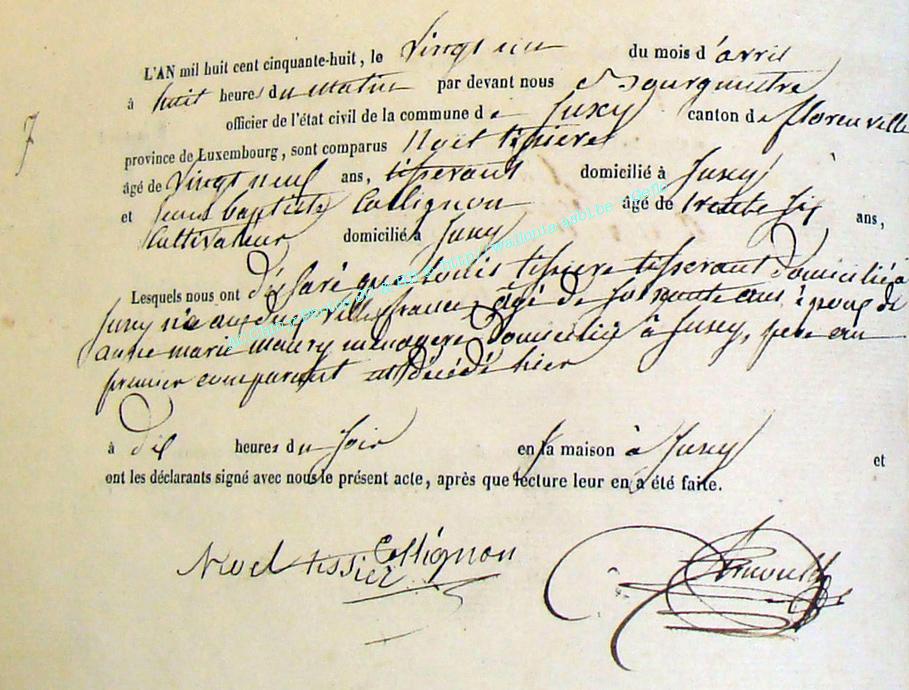 L'AN mil huit cent cinquante-huit, le vingt un du mois d'avril
à huit heures du matin par devant nous Bourgmestre
officier de l'état civil de la commune de Jusey canton de florenville
7
province de Luxembourg, sont comparus Noël tissiere
âgé de vingt neuf ans, tisserant domicilié à Jusey
et jean baptiste Collignon âgé de trente six ans,
Cultivateur domicilié à Jusey
Lesquels nous ont déclaré que Louis tissiere tisserant domicilié à
Jusey né à ville france, âgé de soixante ans, époux de
anne marie maury menagere domicilié à Jusey, père au
premier comparant est décédé hier
à dix heures du soir en sa maison à Jusey et
ont les déclarants signé avec nous le présent acte, après que lecture leur en a été faite.
Noel tissier Collignon Arnould